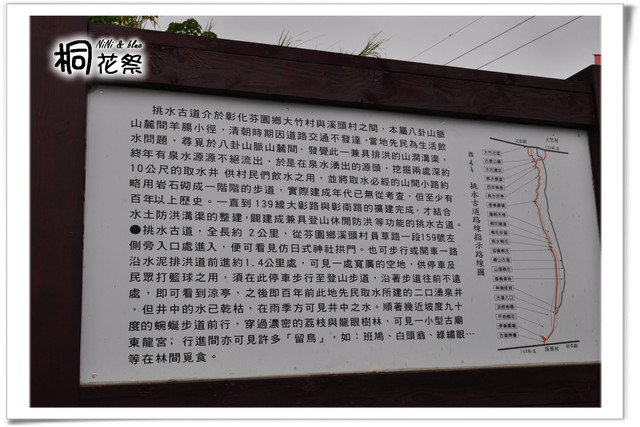 NiNi & blue
桐花祭
挑水古道介於彰化芬園鄉大竹村與溪頭村之間,本屬八卦山脈
山麓間羊腸小徑,清朝時期因道路交通不發達,當地先民為生活飲
水問題,尋覓於八卦山脈山麓間,發覺此一兼具排洪的山澗溝渠,
終年有泉水源源不絕流出,於是在泉水湧出的源頭,挖掘兩處深約
10公尺的取水井 供村民們飲水之用,並將取水必經的山間小路約
略用岩石砌成一階階的步道,實際建成年代已無從考查,但至少有
百年以上歷史。一直到139線大彰路與彰南路的擴建完成,才結合
水土防洪溝渠的整建,闢建成兼具登山休閒防洪等功能的挑水古道。
●挑水古道,全長約 2公里,從芬園鄉溪頭村員草路一段159號左
側旁入口處進入,便可看見仿日式神社拱門。也可步行或開車一路
沿水泥排洪道前進約1.4公里處,可見一處寬廣的空地,供停車及
民眾打籃球之用,須在此停車步行至登山步道,沿著步道往前不遠
處,即可看到涼亭,之後即百年前此地先民取水所建的二口湧泉井
,但井中的水已乾枯,在雨季方可見井中之水。順著幾近坡度九十
度的蜿蜒步道前行,穿過濃密的荔枝與龍眼樹林,可見一小型古廟
東龍宮;行進間亦可見許多「留鳥」,如:班鳩、白頭翁、綠繡眼…
等在林間覓食。
挑水古道路線指示路線圖
大竹村